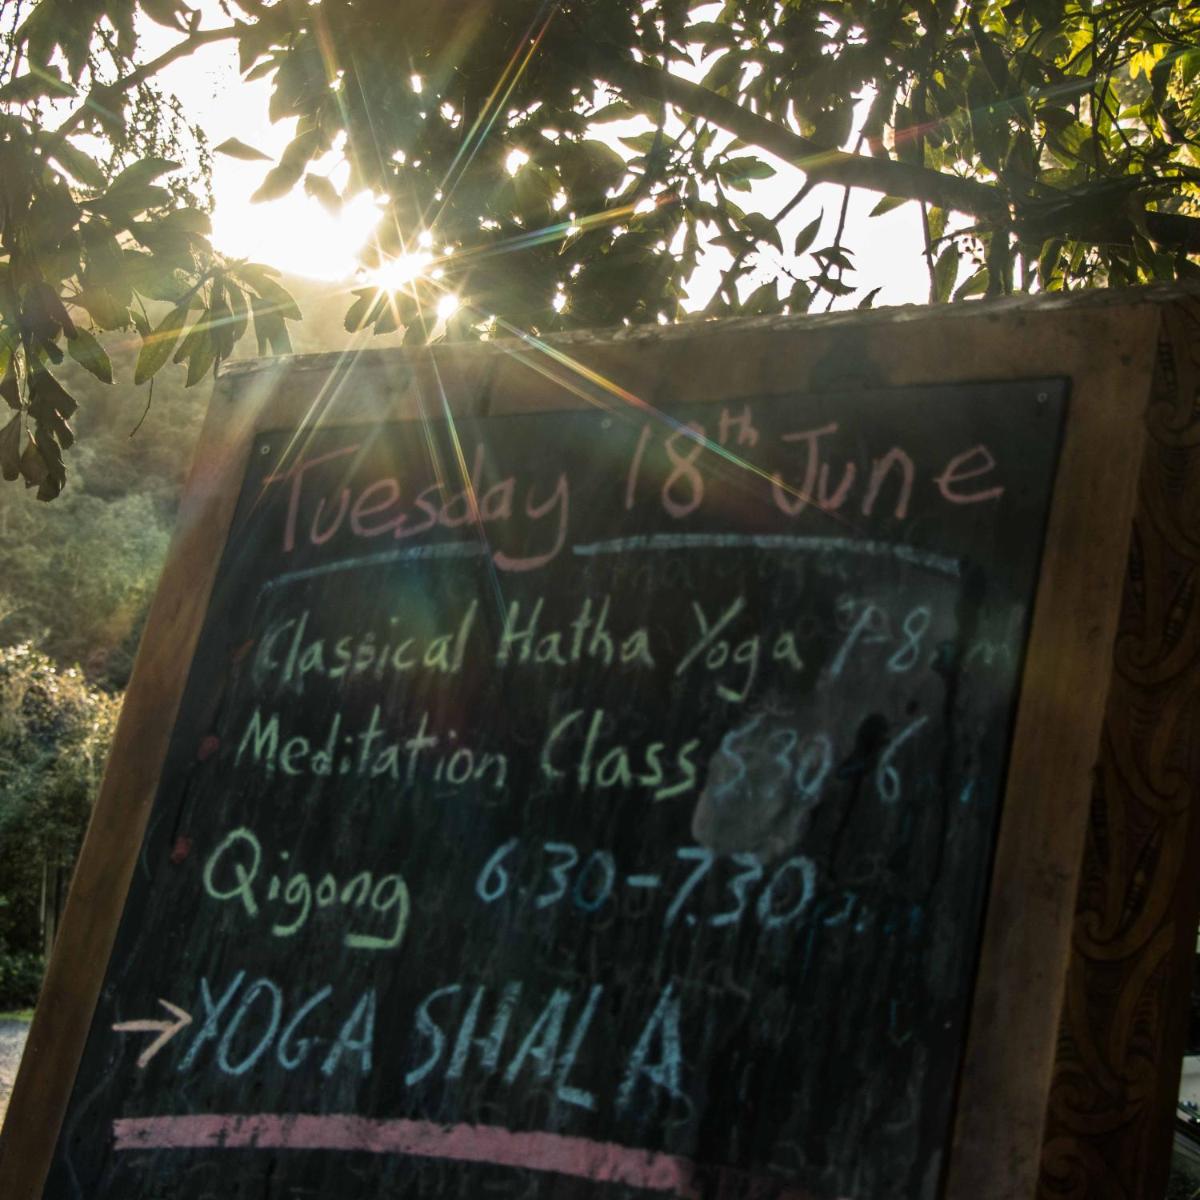 Tuesday 18th June
Classical Hatha Yoga 7-8
Meditation Class 530-6
Qigong 6.30-7.30 p.m
→YOGA SHALA